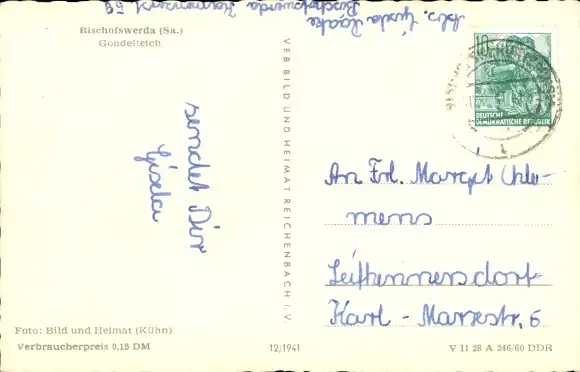 Bischofswerda (Sa.)
Gondelteich
sendet Dir
Gisela
Foto: Bild und Heimat (Kühn)
Verbraucherpreis 0,15 DM
VEB BILD UND HEIMAT REICHENBACH i. V.
12/1941
Abs. Gisela
Bischofswerda
10
DEUTSCHE
DEMOKRATISCHE REPUBLIK
An Frl. Margot
mens
Leifhennersdorf
Karl - Marxstr. 6
V 11 28 A 246/60 DDR